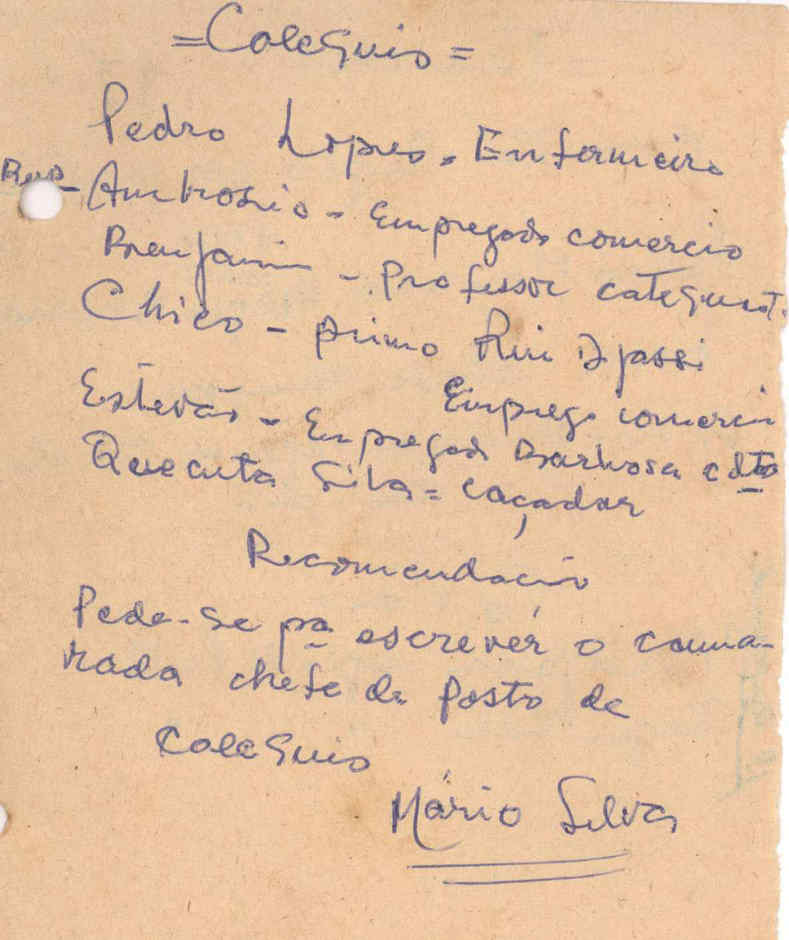 =Colequis=
Pedro Lopes - Enfermeiro
Ambrosio - Empregado comercio
Benjamin - Professor catequist.
Chico - primo Rui Djassi
Emprego comercio
Estevão - Empregado Barbosa cdta
Quecuta Sila = caçador
Recomendação
Pede-se pa escrever o cama-
rada chefe de posto de
Colequis
Mário Silva